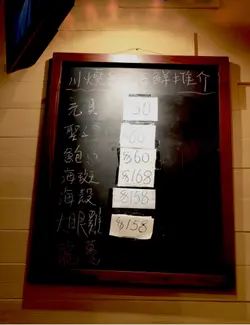 川燦 海鮮推介
元貝 30
聖子 60
鮑 $60
海斑 $168
海殼 $158
大眼雞 $158
龍躉